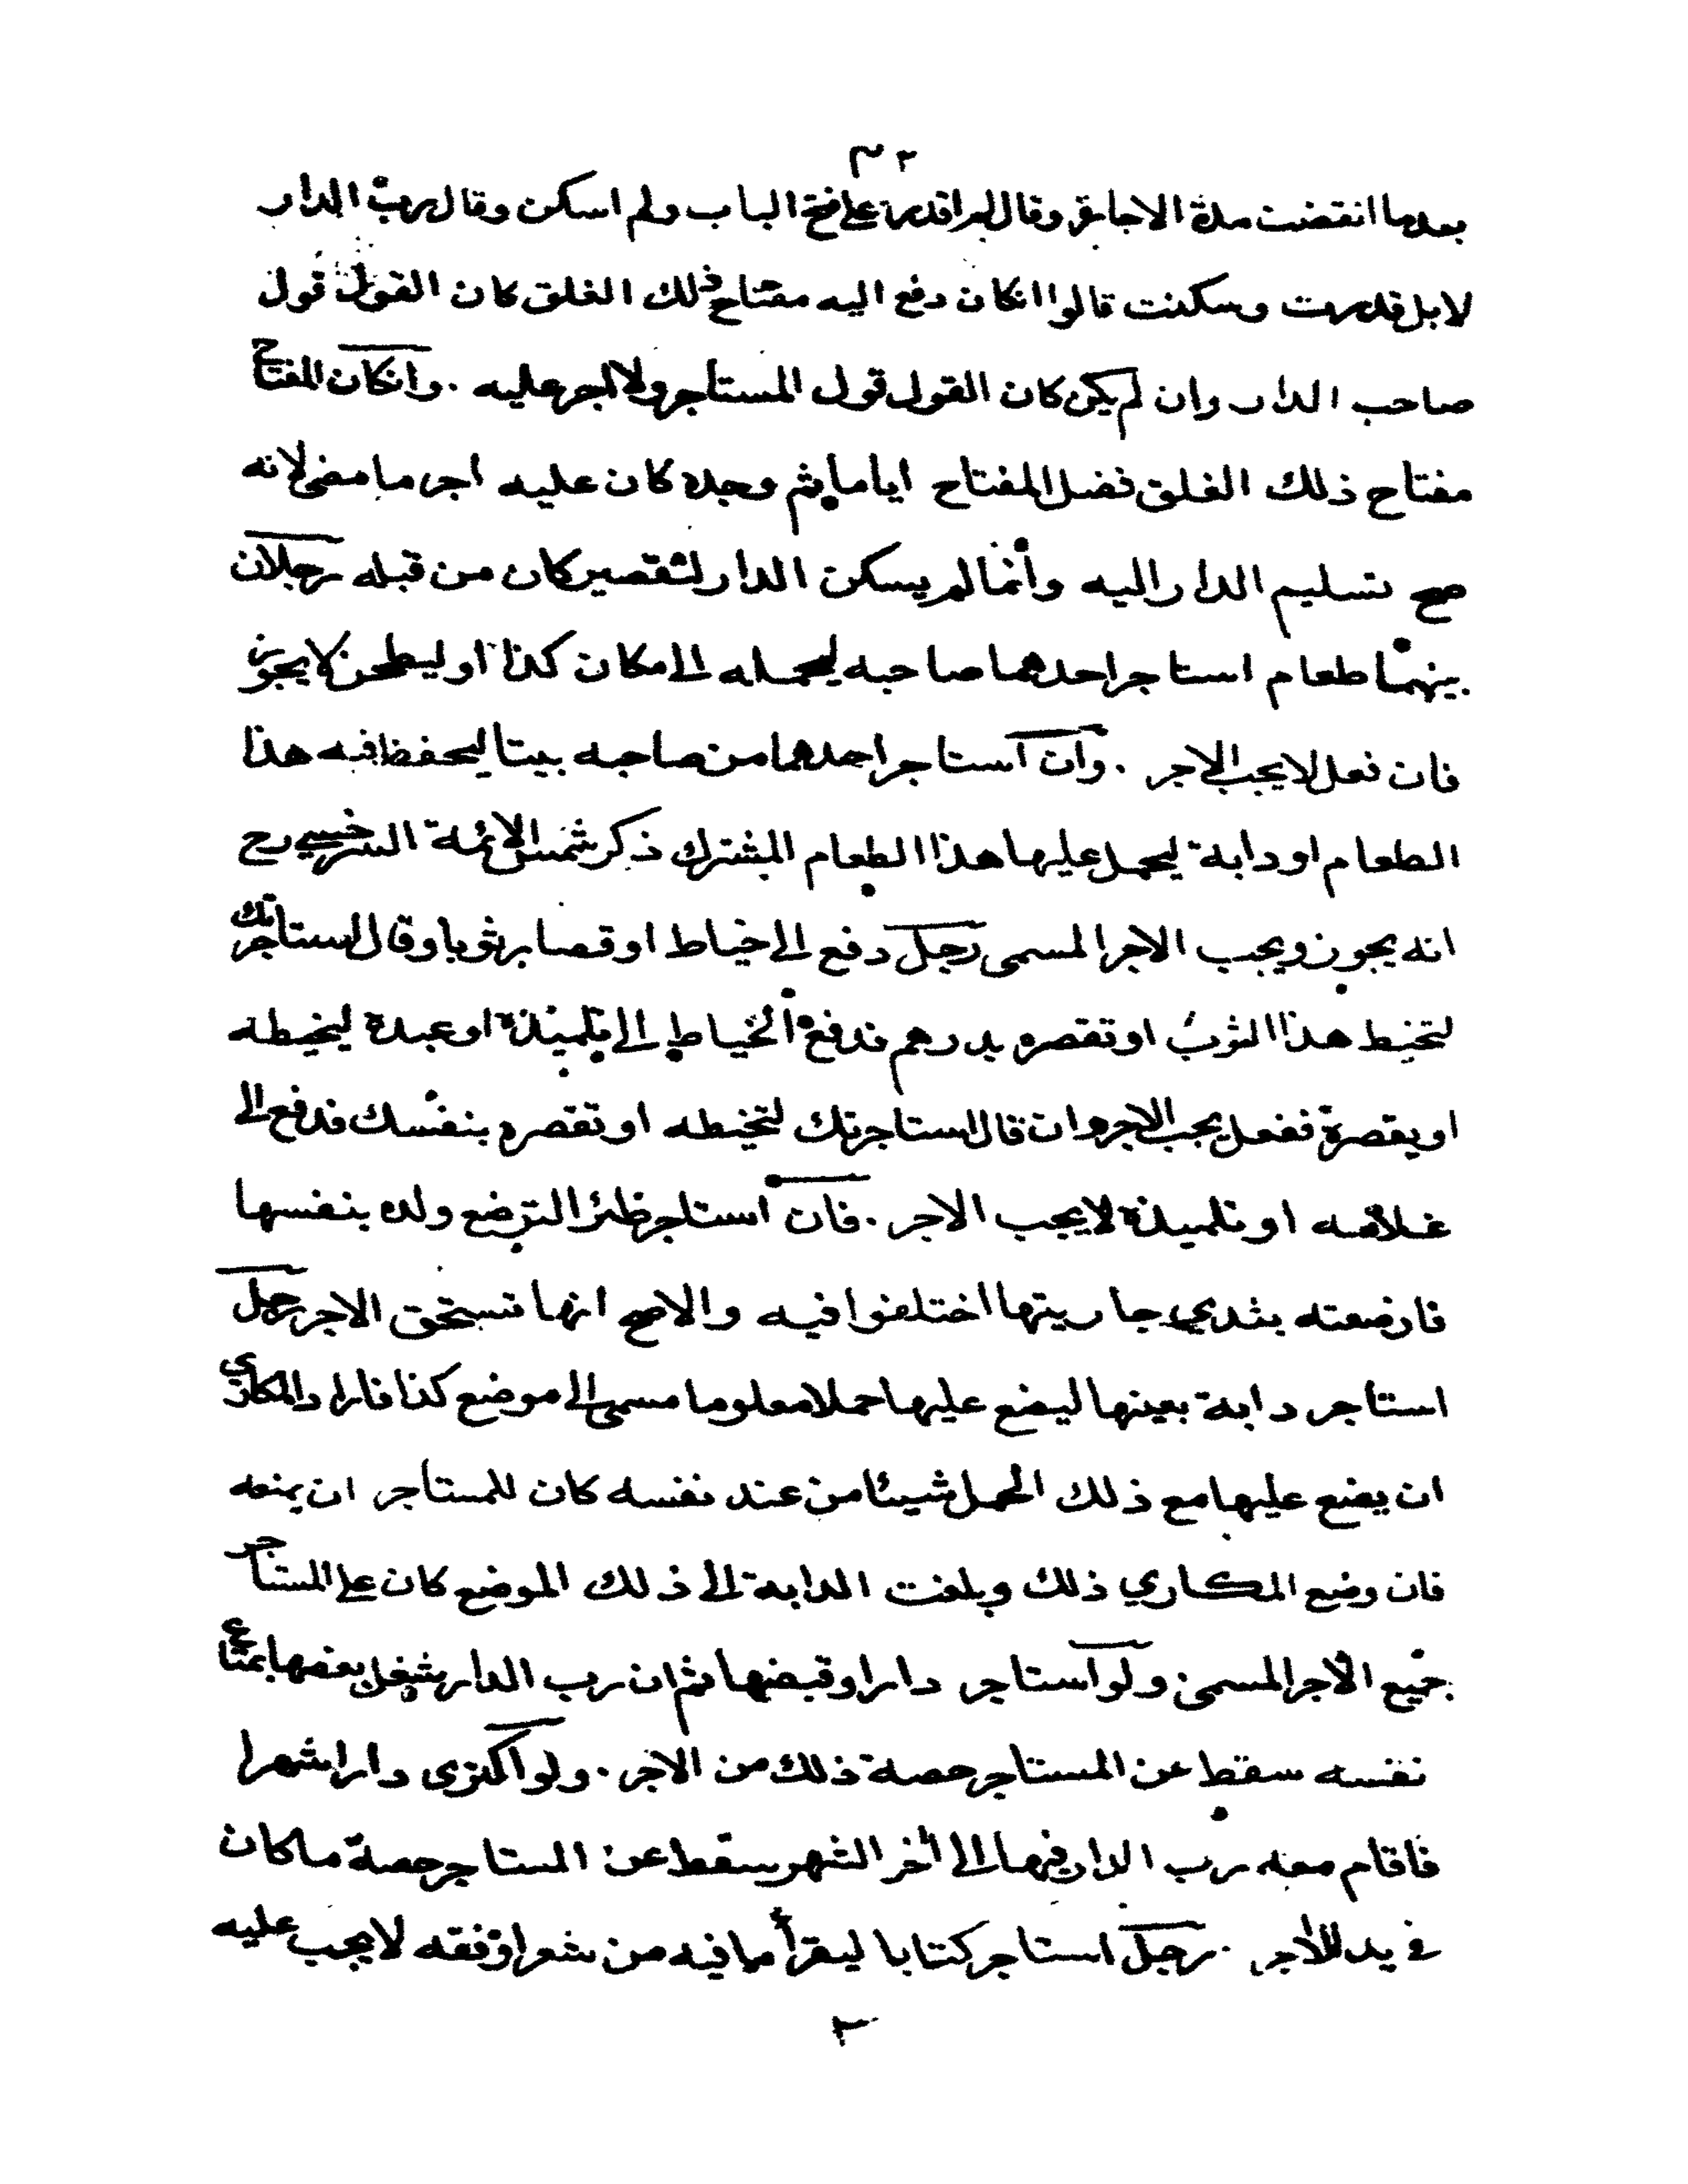 ٣٢
بعدما انقضت مدة الاجارة وقال لم اقدر على فتح الباب ولم اسكن وقال رب الدار
لا بل قدرت وسكنت قالوا انكان دفع اليه مفتاح ذلك الغلق كان القول قول
صاحب الدار وان لم يكن كان القول قول المستأجر ولا اجر عليه . وانكان المفتاح
مفتاح ذلك الغلق فضل المفتاح اياما ثم وجده كان عليه اجر ما مضى لانه
صح تسليم الدار اليه وأنما لم يسكن الدار لتقصير كان من قبله رجلان
بينهما طعام استاجر احدهما صاحبه ليحمله الى مكان كذا او ليطحن لا يجوز
فان فعل لا يجب الاجر . وان استاجر احدهما من صاحبه بيتا ليحفظ فيه هذا
الطعام او دابة ليحمل عليها هذا الطعام المشترك ذكر شمس الائمة السرخسي رح
انه يجوز ويجب الاجر المسمى رجل دفع الى خياط او قصار ثوبا وقال استأجرتك
لتخيط هذا الثوب او تقصره بدرهم فدفع الخياط الى تلميذة او عبدة ليخيطه
او يقصرة ففعل يجب الاجر وان قال استاجرتك لتخيطه او تقصره بنفسك فدفع الى
غلامه او تلميذة لا يجب الاجر . فان استاجر ظئرا لترضع ولده بنفسها
فارضعته بثدي جاريتها اختلفوا فيه والاصح انها تستحق الاجر رجل
استاجر دابة بعينها ليضع عليها حملا معلوما مسمى الى موضع كذا فاراد المكاري
ان يضع عليها مع ذلك الحمل شيئا من عند نفسه كان للمستأجر ان يمنعه
فان وضع المكاري ذلك وبلغت الدابة الى ذلك الموضع كان على المستأجر
جميع الاجر المسمى ولو استاجر دارا وقبضها ثم ان رب الدار شغل بعضها بمتاع
نفسه سقط عن المستاجر حصة ذلك من الاجر . ولو اكترى دارا شهرا
فاقام معه رب الدار فيها الى أخر الشهر سقط عن المستاجر حصة ما كان
في يد الاجر . رجل استاجر كتابا ليقرأ ما فيه من شعر او فقه لا يجب عليه